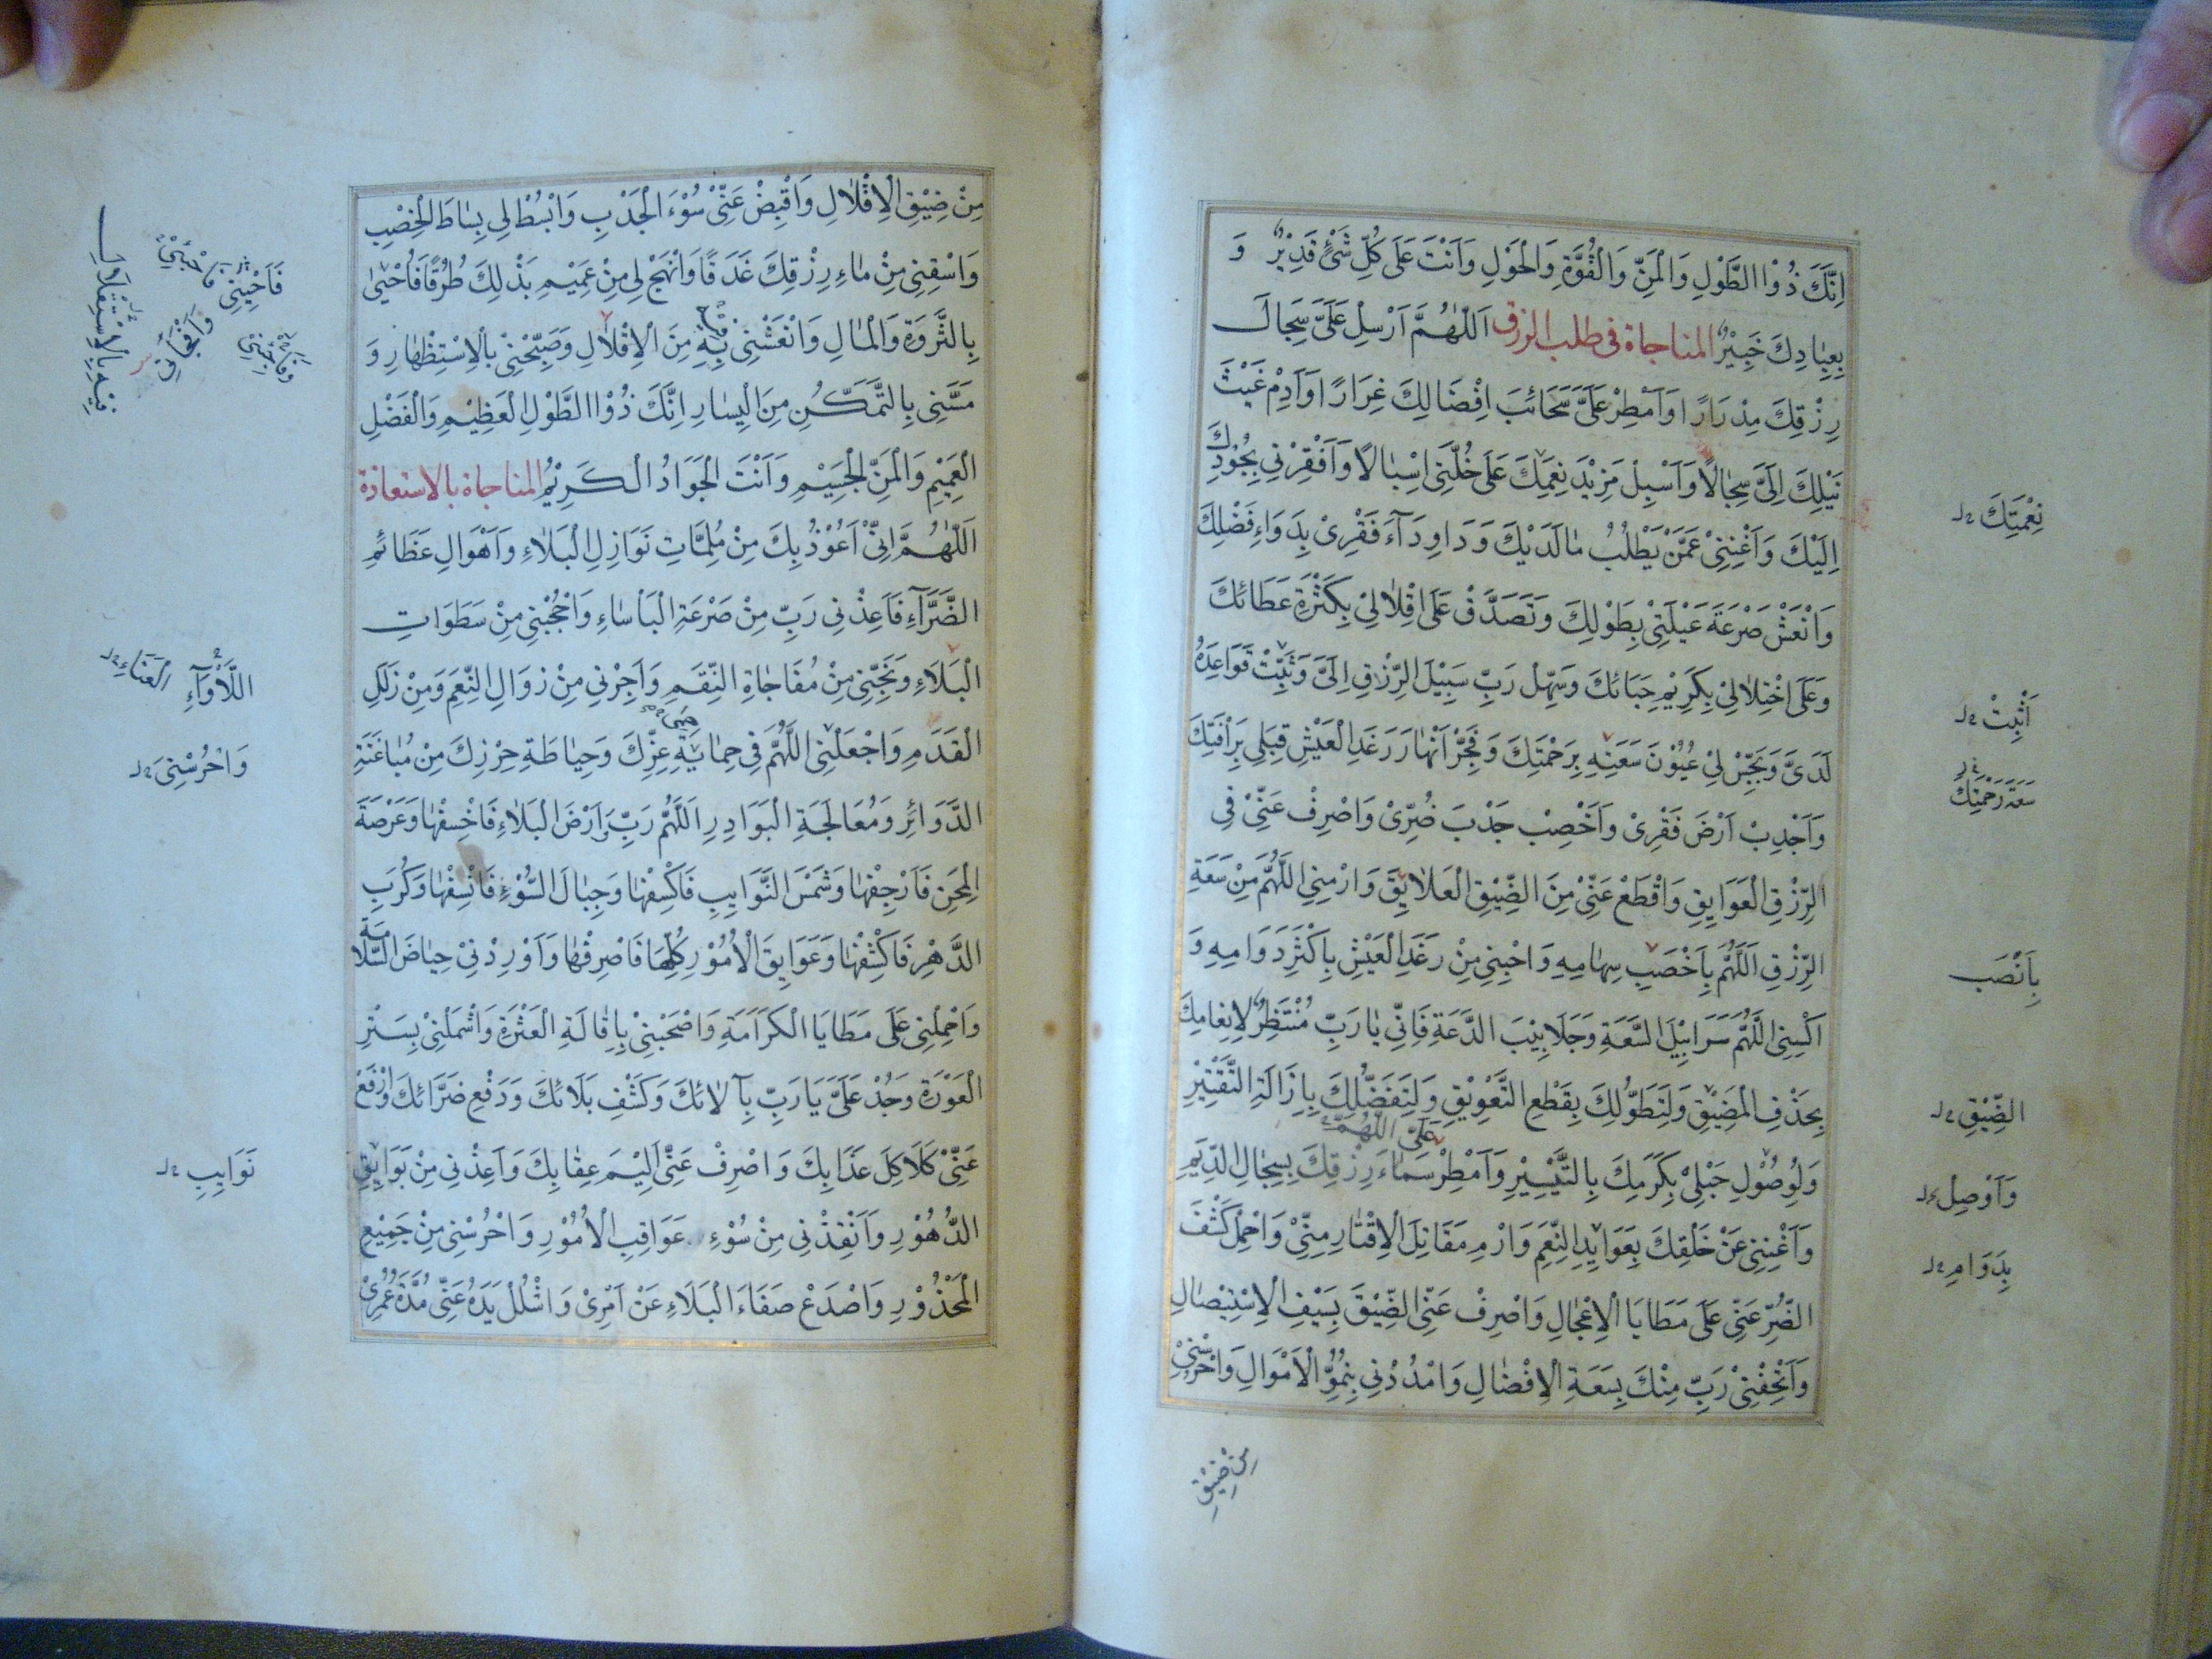 اِنَّكَ ذُوْا الطَّوْلِ وَالْمَنِّ وَالْقُوَّةِ وَالْحَوْلِ وَاَنْتَ عَلَى كُلِّ شَيْءٍ قَدِيْرٌ وَ
بِعِبَادِكَ خَبِيْرٌ المناجاة فى طلب الرزق اَللّٰهُمَّ اَرْسِلْ عَلَىَّ سِجَالَ
رِزْقِكَ مِدْرَارًا وَاَمْطِرْ عَلَىَّ سَحَائِبَ اِفْضَالِكَ غِرَارًا وَاَدِمْ غَيْثَ
نَيْلِكَ اِلَىَّ سِجَالًا وَاَسْبِلْ مَزِيْدَ نِعَمِكَ عَلَى خُلَّتِى اِسْبَالًا وَاَفْقِرْنِى بِجُوْدِكَ
اِلَيْكَ وَاَغْنِنِىْ عَمَّنْ يَطْلُبُ مَا لَدَيْكَ وَدَاوِ دَآءَ فَقْرِىْ بِدَوَاءِ فَضْلِكَ
وَانْعَشْ صَرْعَةَ عَيْلَتِىْ بِطَوْلِكَ وَتَصَدَّقْ عَلَى اِقْلَالِىْ بِكَثْرَةِ عَطَائِكَ
وَعَلَى اخْتِلَالِىْ بِكَرِيْمِ حِبَائِكَ وَسَهِّلْ رَبِّ سَبِيْلَ الرِّزْقِ اِلَىَّ وَثَبِّتْ قَوَاعِدَهُ
لَدَىَّ وَبَجِّسْ لِىْ عُيُوْنَ سَعَتِهِ بِرَحْمَتِكَ وَفَجِّرْ اَنْهَارَ رَغَدِ الْعَيْشِ قِبَلِى بِرَاْفَتِكَ
وَاَجْدِبْ اَرْضَ فَقْرِىْ وَاَخْصِبْ جَدْبَ ضُرِّىْ وَاصْرِفْ عَنِّىْ فِى
الرِّزْقِ الْعَوَايِقِ وَاقْطَعْ عَنِّىْ مِنَ الضِّيْقِ الْعَلَايِقَ وَارْمِنِى اللّٰهُمَّ مِنْ سَعَةِ
الرِّزْقِ اَللّٰهُمَّ بِاَخْصَبِ سِهَامِهِ وَاحْبِنِى مِنْ رَغَدِ الْعَيْشِ بِاَكْثَرِ دَوَامِهِ وَ
اكْسِنِى اللّٰهُمَّ سَرَابِيْلَ السَّعَةِ وَجَلَابِيْبَ الدَّعَةِ فَاِنِّى يَا رَبِّ مُنْتَظِرٌ لِاِنْعَامِكَ
بِحَذْفِ الْمَضِيْقِ وَلِتَطَوُّلِكَ بِقَطْعِ التَّعْوِيْقِ وَلِتَفَضُّلِكَ بِاِزَالَةِ التَّقْتِيْرِ
وَلِوُصُوْلِ حَبْلِىْ بِكَرَمِكَ بِالتَّيْسِيْرِ وَاَمْطِرْ عَلَىَّ اللّٰهُمَّ سَمَاءَ رِزْقِكَ بِسِجَالِ الدِّيَمِ
وَاَغْنِنِىْ عَنْ خَلْقِكَ بِعَوَايِدِ النِّعَمِ وَارْمِ مَقَاتِلَ الْاِقْتَارِ مِنِّىْ وَاحْمِلْ كَشْفَ
الضُّرِّ عَنِّىْ عَلَى مَطَايَا الْاِعْجَالِ وَاصْرِفْ عَنِّى الضِّيْقَ بِسَيْفِ الْاِسْتِيْصَالِ
وَاَتْحِفْنِىْ رَبِّ مِنْكَ بِسَعَةِ الْاِفْضَالِ وَامْدُدْنِى بِنُمُوِّ الْاَمْوَالِ وَاحْرُسْنِىْ
من ضيق
نِعْمَتِكَ
اَثْبِتْ
سَعَةَ رَحْمَتِكَ
بِاَنْصَبِ
الضِّيْقِ
وَاَوْصِلْ
بِدَوَامِ
مِنْ ضِيْقِ الْاِقْلَالِ وَاقْبِضْ عَنِّىْ سُوْءَ الْجَدْبِ وَابْسُطْ لِى بِسَاطَ الْخِصْبِ
وَاسْقِنِى مِنْ مَاءِ رِزْقِكَ غَدَقًا وَانْهَجْ لِى مِنْ عَمِيْمِ بَذْلِكَ طُرُقًا فَاُحْيٰى
بِالثَّرْوَةِ وَالْمَالِ وَانْعَشْنِى بِهِ مِنَ الْاِقْلَالِ وَصَبِّحْنِىْ بِالْاِسْتِظْهَارِ وَ
مَسِّنِى بِالتَّمَكُّنِ مِنَ الْيَسَارِ اِنَّكَ ذُوْا الطَّوْلِ الْعَظِيْمِ وَالْفَضْلِ
الْعَمِيْمِ وَالْمَنِّ الْجَسِيْمِ وَاَنْتَ الْجَوَادُ الْكَرِيْمُ المناجاة بالاستعاذة
اَللّٰهُمَّ اِنِّىْ اَعُوْذُ بِكَ مِنْ مُلِمَّاتِ نَوَازِلِ الْبَلَاءِ وَاَهْوَالِ عَظَائِمِ
الضَّرَّآءِ فَاَعِذْنِى رَبِّ مِنْ صَرْعَةِ الْبَاْسَاءِ وَاحْجُبْنِى مِنْ سَطَوَاتِ
الْبَلَاءِ وَنَجِّنِى مِنْ مُفَاجَاةِ النِّقَمِ وَاَجِرْنِى مِنْ زَوَالِ النِّعَمِ وَمِنْ زَلَلِ
الْقَدَمِ وَاجْعَلْنِى اللّٰهُمَّ فِى حِمَايَةِ عِزِّكَ وَحِيَاطَةِ حِرْزِكَ مِنْ مُبَاغَتَةِ
الدَّوَائِرِ وَمُعَالَجَةِ الْبَوَادِرِ اَللّٰهُمَّ رَبِّ وَاَرْضَ الْبَلَاءِ فَاخْسِفْهَا وَعَرْصَةَ
الْمِحَنِ فَارْجِفْهَا وَشَمْسَ النَّوَايِبِ فَاكْسِفْهَا وَجِبَالَ السُّوْءِ فَانْسِفْهَا وَكُرَبِ
الدَّهْرِ فَاكْشِفْهَا وَعَوَايِقَ الْاُمُوْرِ كُلِّهَا فَاصْرِفْهَا وَاَوْرِدْنِىْ حِيَاضَ السَّلَامَةِ
وَاحْمِلْنِى عَلَى مَطَايَا الْكَرَامَةِ وَاصْحَبْنِىْ بِاِقَالَةِ الْعَثْرَةِ وَاشْمَلْنِىْ بِسَتْرِ
الْعَوْرَةِ وَجُدْ عَلَىَّ يَا رَبِّ بِآلَائِكَ وَكَشْفِ بَلَائِكَ وَدَفْعِ ضَرَّائِكَ وَارْفَعْ
عَنِّىْ كَلَاكِلَ عَذَابِكَ وَاصْرِفْ عَنِّى اَلِيْمَ عِقَابِكَ وَاَعِذْنِى مِنْ بَوَايِقِ
الدُّهُوْرِ وَاَنْقِذْنِى مِنْ سُوْءِ عَوَاقِبِ الْاُمُوْرِ وَاحْرُسْنِى مِنْ جَمِيْعِ
الْمَحْذُوْرِ وَاصْدَعْ صَفَاءَ الْبَلَاءِ عَنْ اَمْرِىْ وَاشْلُلْ يَدَهُ عَنِّى مُدَّةَ عُمُرِىْ
اللَّاْوَآءِ الْعَنَاءِ
وَاحْرُسْنِى
نَوَايِبِ